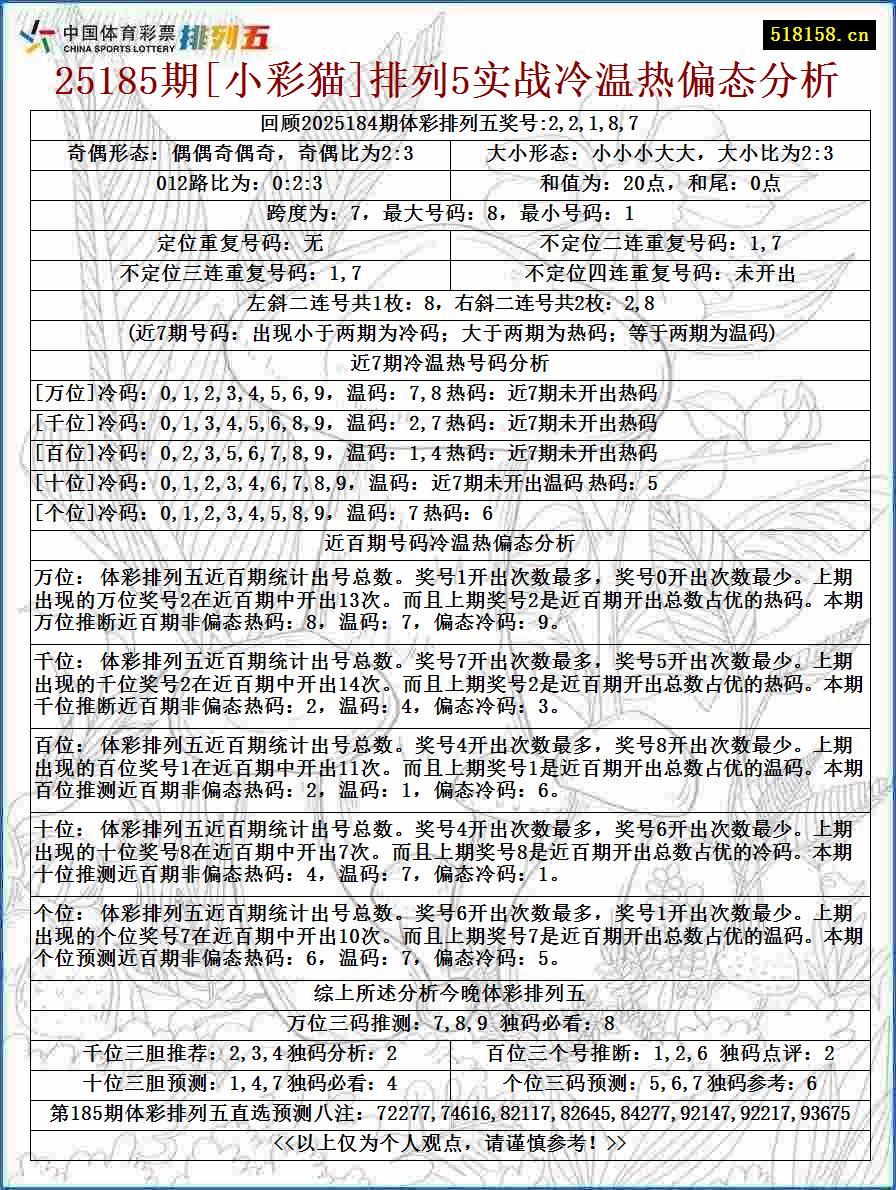 中国体育彩票 排列五
CHINA SPORTS LOTTERY
518158.cn
25185期[小彩猫]排列5实战冷温热偏态分析
回顾2025184期体彩排列五奖号:2,2,1,8,7
奇偶形态：偶偶奇偶奇，奇偶比为2:3
大小形态：小小小大大，大小比为2:3
012路比为：0:2:3
和值为：20点，和尾：0点
跨度为：7，最大号码：8，最小号码：1
定位重复号码：无
不定位二连重复号码：1,7
不定位三连重复号码：1,7
不定位四连重复号码：未开出
左斜二连号共1枚：8，右斜二连号共2枚：2,8
(近7期号码：出现小于两期为冷码；大于两期为热码；等于两期为温码)
近7期冷温热号码分析
[万位]冷码：0,1,2,3,4,5,6,9，温码：7,8 热码：近7期未开出热码
[千位]冷码：0,1,3,4,5,6,8,9，温码：2,7 热码：近7期未开出热码
[百位]冷码：0,2,3,5,6,7,8,9，温码：1,4 热码：近7期未开出热码
[十位]冷码：0,1,2,3,4,6,7,8,9，温码：近7期未开出温码 热码：5
[个位]冷码：0,1,2,3,4,5,8,9，温码：7 热码：6
近百期号码冷温热偏态分析
万位：体彩排列五近百期统计出号总数。奖号1开出次数最多，奖号0开出次数最少。上期
出现的万位奖号2在近百期中开出13次。而且上期奖号2是近百期开出总数占优的热码。本期
万位推断近百期非偏态热码：8，温码：7，偏态冷码：9。
千位：体彩排列五近百期统计出号总数。奖号7开出次数最多，奖号5开出次数最少。上期
出现的千位奖号2在近百期中开出14次。而且上期奖号2是近百期开出总数占优的热码。本期
千位推断近百期非偏态热码：2，温码：4，偏态冷码：3。
百位：体彩排列五近百期统计出号总数。奖号4开出次数最多，奖号8开出次数最少。上期
出现的百位奖号1在近百期中开出11次。而且上期奖号1是近百期开出总数占优的温码。本期
百位推测近百期非偏态热码：2，温码：1，偏态冷码：6。
十位：体彩排列五近百期统计出号总数。奖号4开出次数最多，奖号6开出次数最少。上期
出现的十位奖号8在近百期中开出7次。而且上期奖号8是近百期开出总数占优的冷码。本期
十位推测近百期非偏态热码：4，温码：7，偏态冷码：1。
个位：体彩排列五近百期统计出号总数。奖号6开出次数最多，奖号1开出次数最少。上期
出现的个位奖号7在近百期中开出10次。而且上期奖号7是近百期开出总数占优的温码。本期
个位预测近百期非偏态热码：6，温码：7，偏态冷码：5。
综上所述分析今晚体彩排列五
万位三码推测：7,8,9 独码必看：8
千位三胆推荐：2,3,4 独码分析：2
百位三个号推断：1,2,6 独码点评：2
十位三胆预测：1,4,7 独码必看：4
个位三码预测：5,6,7 独码参考：6
第185期体彩排列五直选预测八注：72277,74616,82117,82645,84277,92147,92217,93675
<<以上仅为个人观点，请谨慎参考！>>